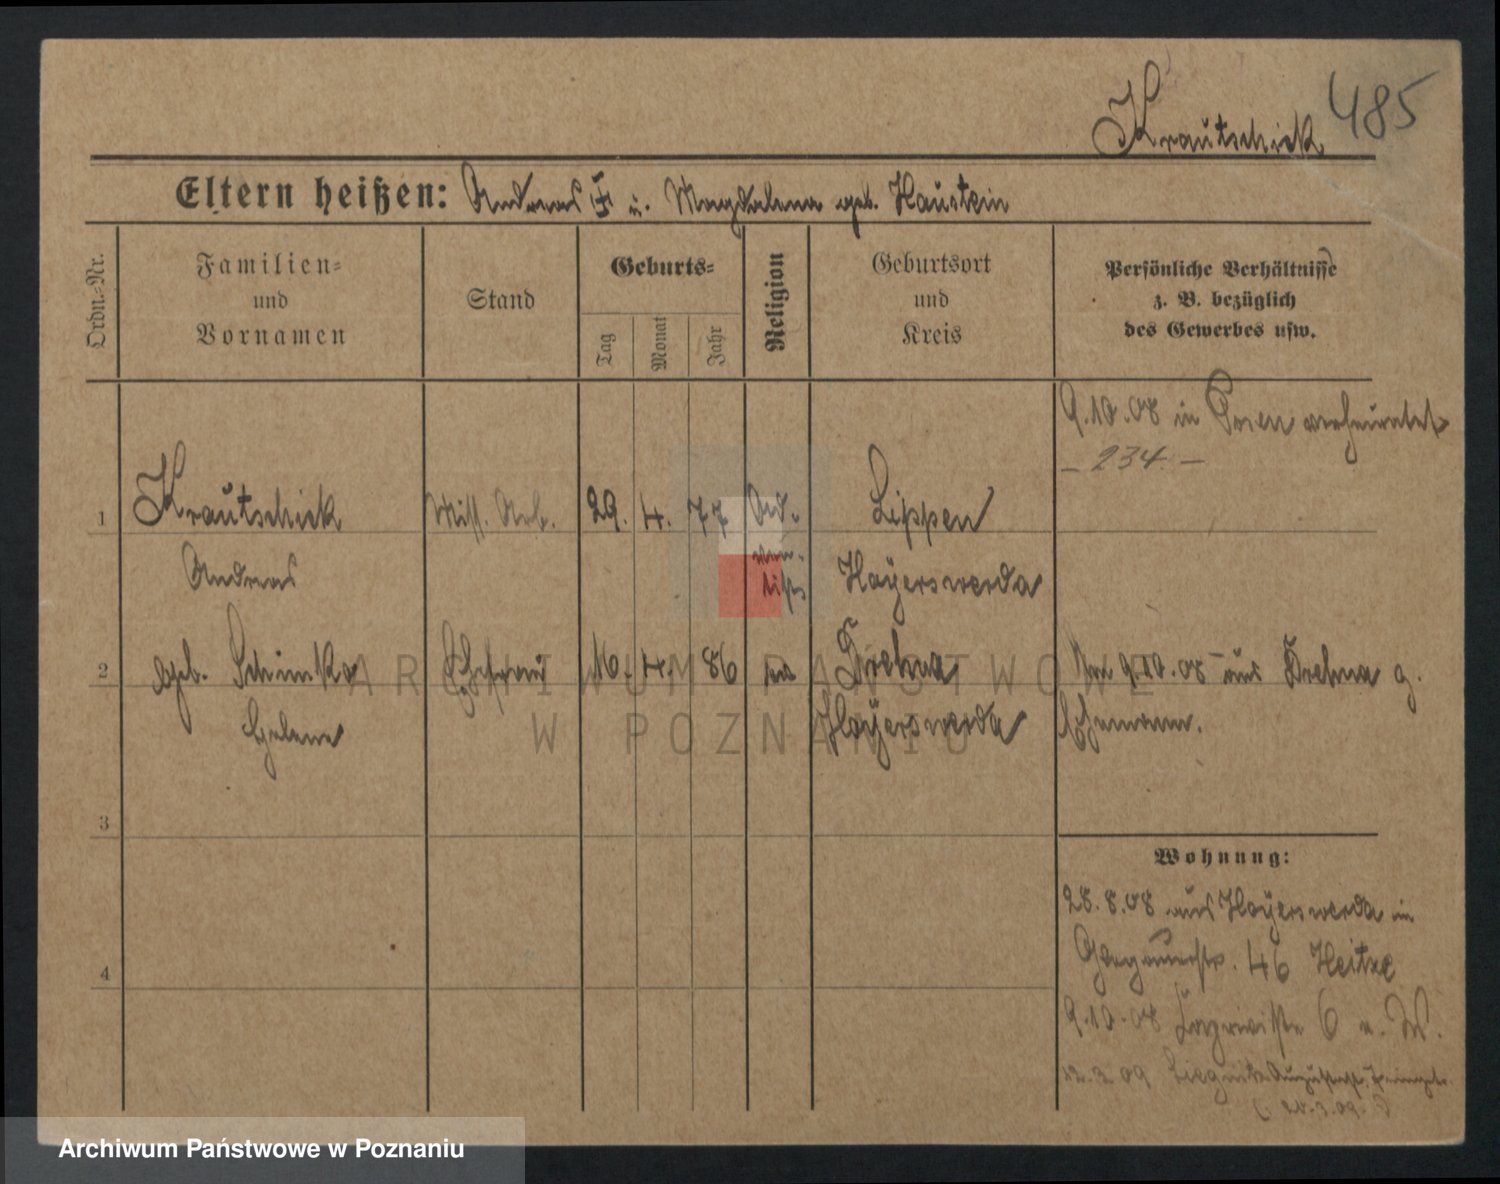 Krautschick 485
Eltern heißen: Andreas u. Magdalena geb. Haustein
Ordn.-Nr.
Familien-
und
Vornamen
Stand
Geburts-
Tag
Monat
Jahr
Religion
Geburtsort
und
Kreis
Persönliche Verhältnisse
z. B. bezüglich
des Gewerbes usw.
9.10.08 in Posen verheiratet
- 234. -
1 Krautschick 29. 4. 77 Lippen
Andreas Hoyerswerda
2 geb. Schimko Ehefrau 16. 4. 86 Drehna Am 9.10.08 aus Drehna z.
Helene Hoyerswerda Ehemann.
3
Wohnung:
28.8.08 aus Hoyerswerda in
Glogauerstr. 46 Heitze
4
9.10.08 6
12.3.09 Liegnitz
ARCHIWUM PAŃSTWOWE
W POZNANIU
Archiwum Państwowe w Poznaniu